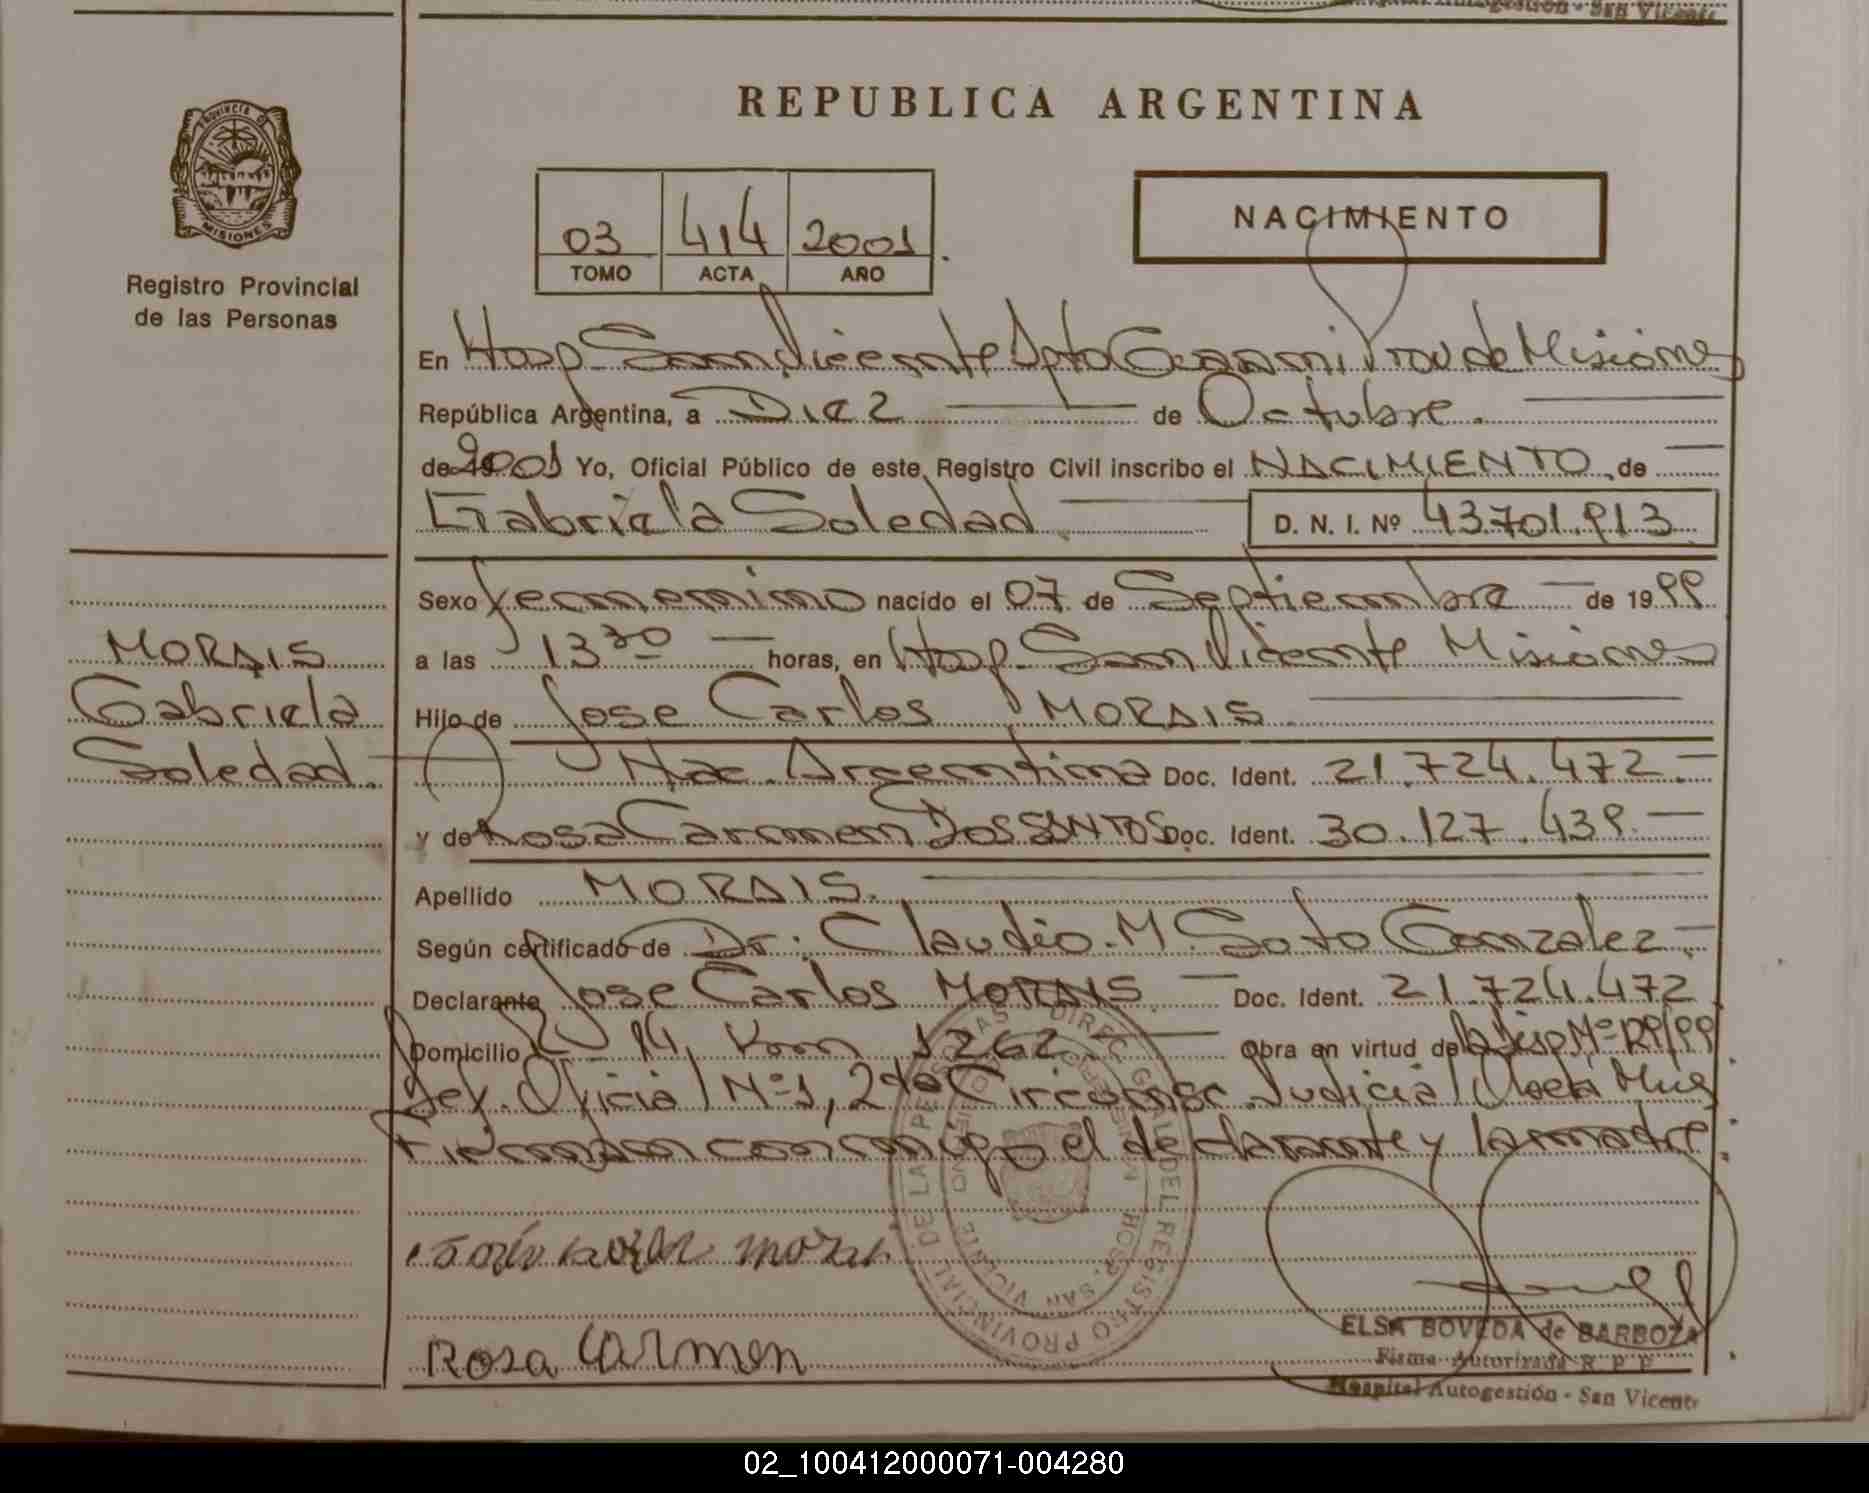 Autogestión - San Vicente
Provincia de
MISIONES
Registro Provincial
de las Personas
REPUBLICA ARGENTINA
03 414 2001
TOMO ACTA AÑO
NACIMIENTO
En Hosp. San Vicente Dpto Guarani Prov de Misiones
República Argentina, a Diez de Octubre.
de 2001 Yo, Oficial Público de este Registro Civil inscribo el NACIMIENTO de
Gabriela Soledad D. N. I. Nº 43.701.913
Sexo femenino nacido el 07 de Septiembre de 1999
a las 13 30 horas, en Hosp. San Vicente Misiones
Hijo de Jose Carlos MORAIS
Nac. Argentina Doc. Ident. 21.724.472.-
y de Rosa Carmen DOS SANTOS Doc. Ident. 30.127.439.-
Apellido MORAIS.
Según certificado de Dr. Claudio M. Soto Gonzalez
Declarante Jose Carlos MORAIS Doc. Ident. 21.724.472
Domicilio R 14 Km 1262 Obra en virtud de la Disp Nº
Def. Oficial Nº 1, 2da Circunsc. Judicial
Firman conmigo el declarante y la madre
MORAIS
Gabriela
Soledad.
Rosa Carmen
DIREC. GRAL. DEL REGISTRO PROVINCIAL DE LAS PERSONAS
HOSP. SAN VICENTE
ELSA BOVEDA de BARBOZA
Firma Autorizada R. P. P.
Hospital Autogestión - San Vicente
02_100412000071-004280